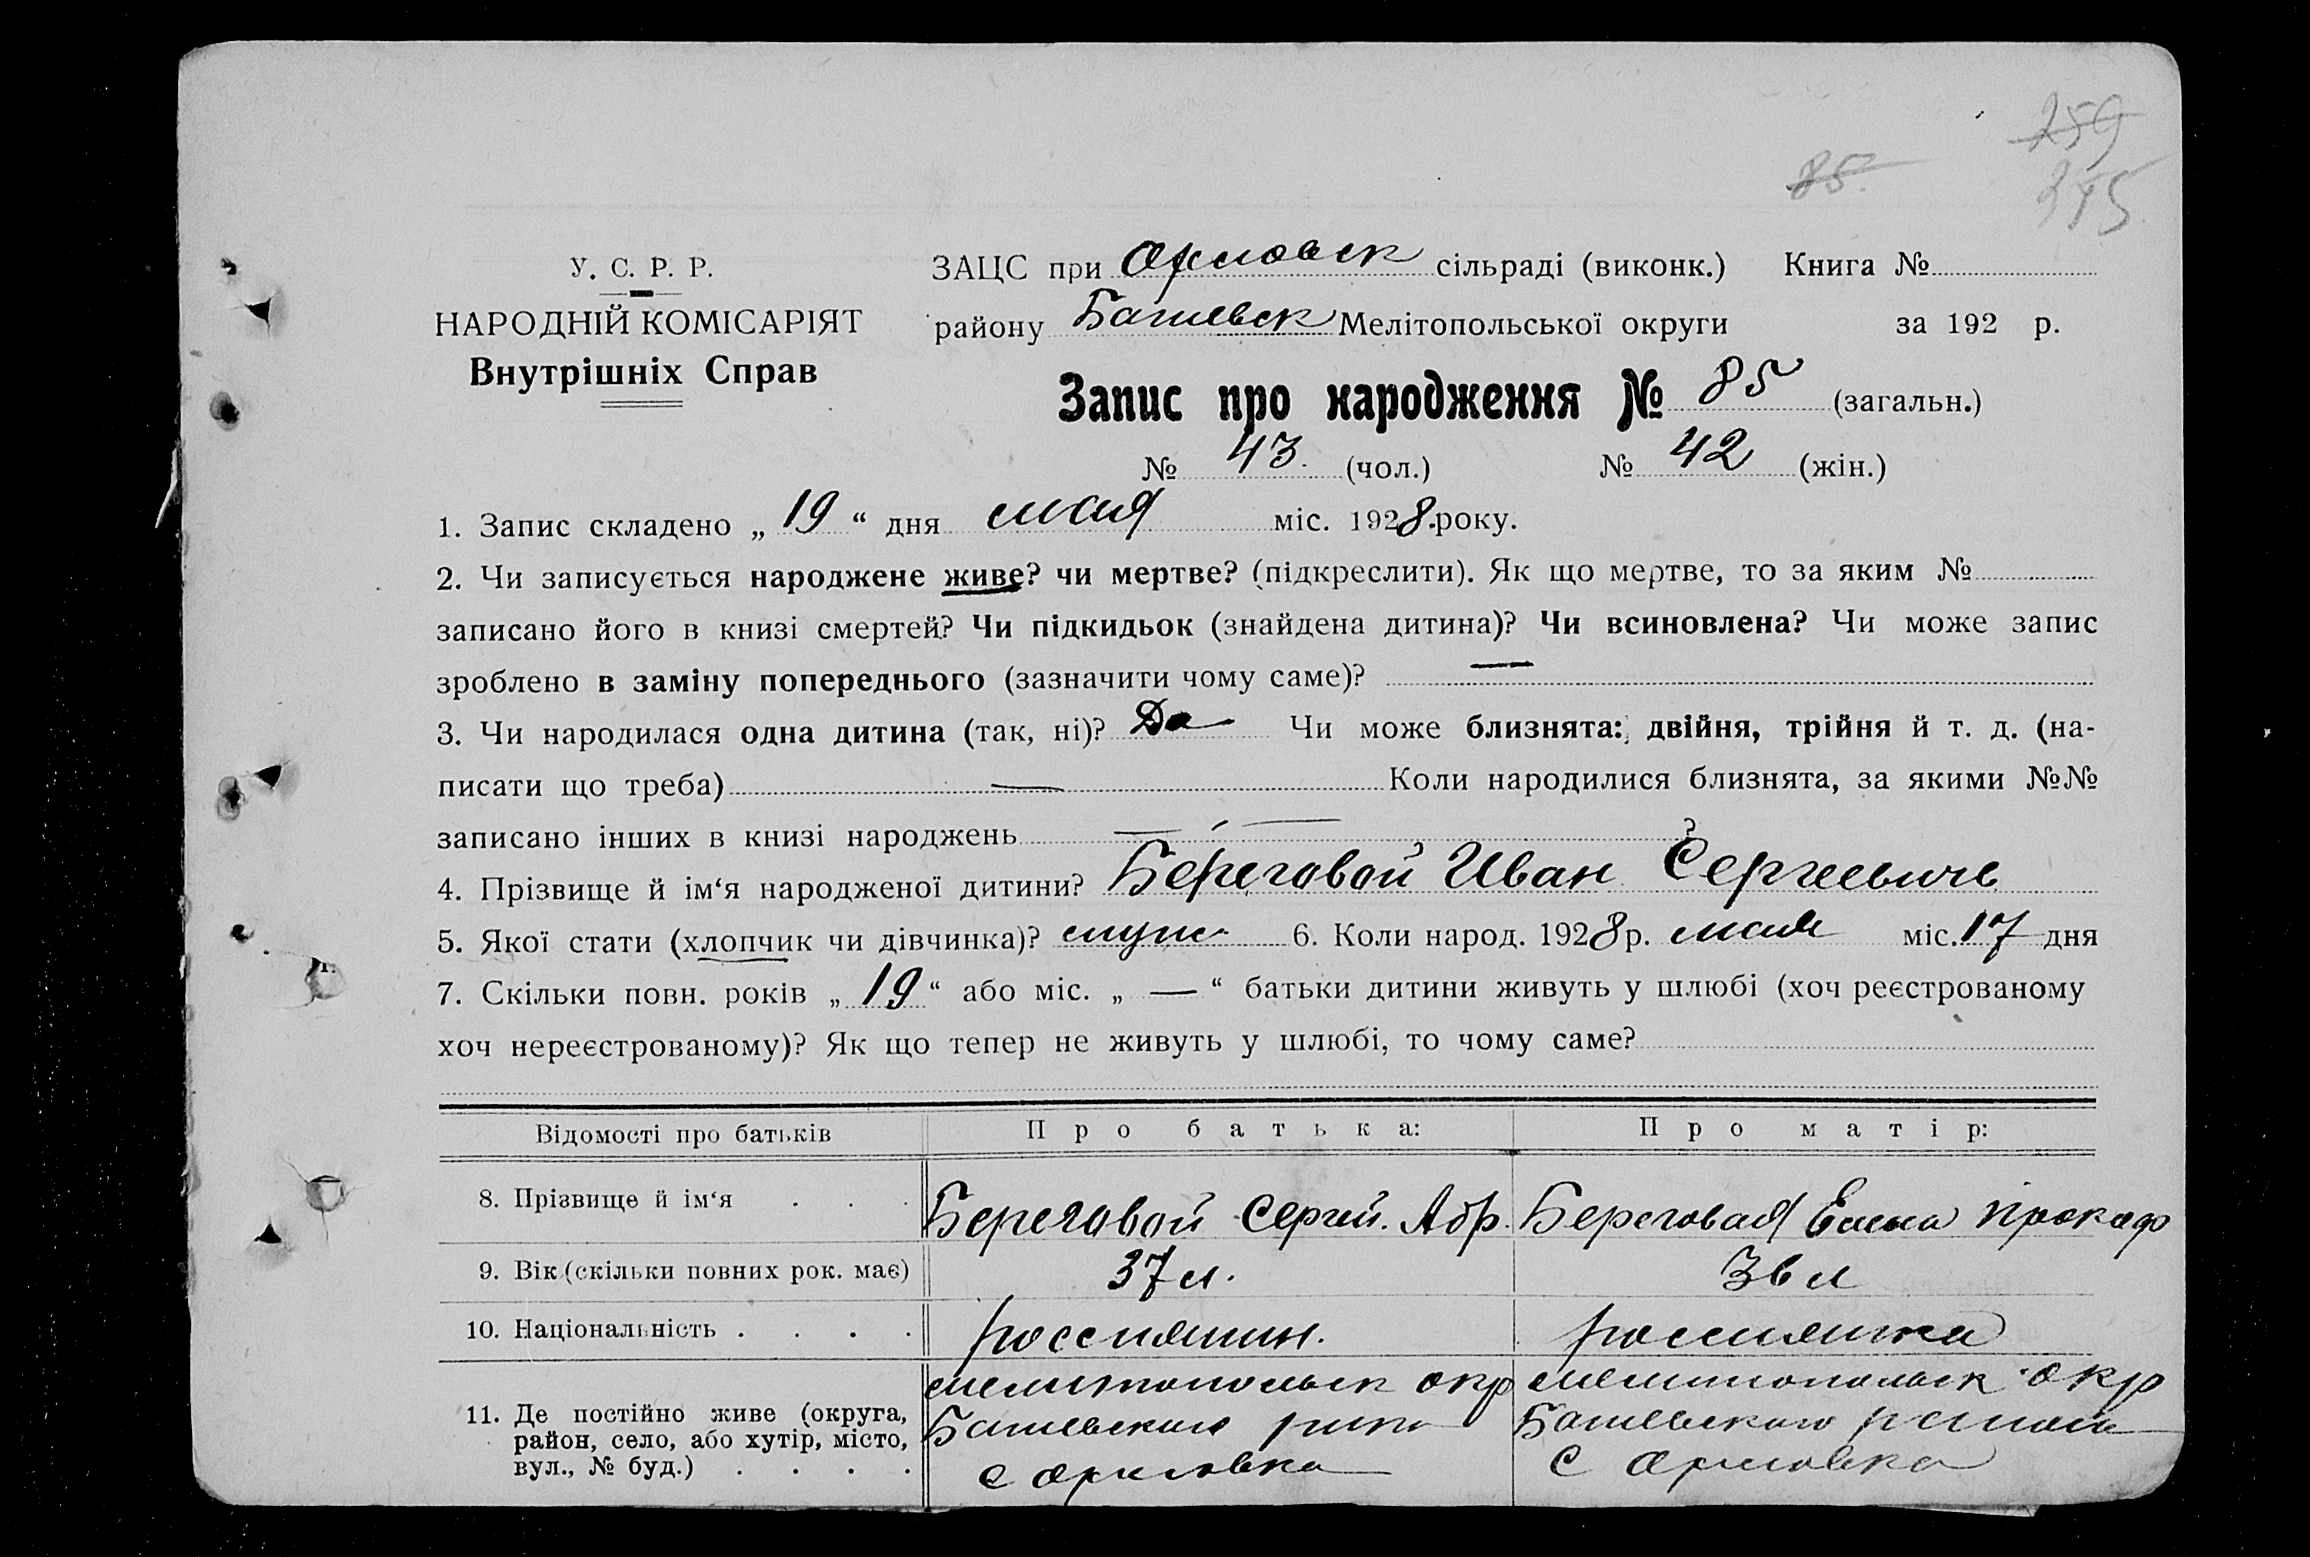 259
85.
345
У. С. Р. Р.
НАРОДНІЙ КОМІСАРІЯТ
Внутрішніх Справ
ЗАЦС при Орловск сільраді (виконк.) Книга №
району Мелітопольської округи за 192 р.
Запис про народження № 85 (загальн.)
№ 43. (чол.) № 42 (жін.)
1. Запис складено „ 19 “ дня мая міс. 1928. року.
2. Чи записується народжене живе? чи мертве? (підкреслити). Як що мертве, то за яким №
записано його в книзі смертей? Чи підкидьок (знайдена дитина)? Чи всиновлена? Чи може запис
зроблено в заміну попереднього (зазначити чому саме)? —
3. Чи народилася одна дитина (так, ні)? Да Чи може близнята: двійня, трійня й т. д. (на-
писати що треба) — Коли народилися близнята, за якими №№
записано інших в книзі народжень — — ?
4. Прізвище й ім‘я народженої дитини? Береговой Иван Сергеевичъ
5. Якої стати (хлопчик чи дівчинка)? муж. 6. Коли народ. 1928 р. мая міс. 17 дня
7. Скільки повн. років „ 19 “ або міс. „ — “ батьки дитини живуть у шлюбі (хоч реєстрованому
хоч нереєстрованому)? Як що тепер не живуть у шлюбі, то чому саме?
Відомості про батьків Про батька: Про матір:
8. Прізвище й ім‘я . . . Береговой Сергей. Абр. Береговая Елена Прокоф
9. Вік (скільки повних рок. має) 37 л. 36 л
10. Національність . . . . россиянин. россиянка
11. Де постійно живе (округа, район, село, або хутір, місто, вул., № буд.) . . . .
мелитопольск окр
с Орловка
мелитопольск окр
района
с Орловка